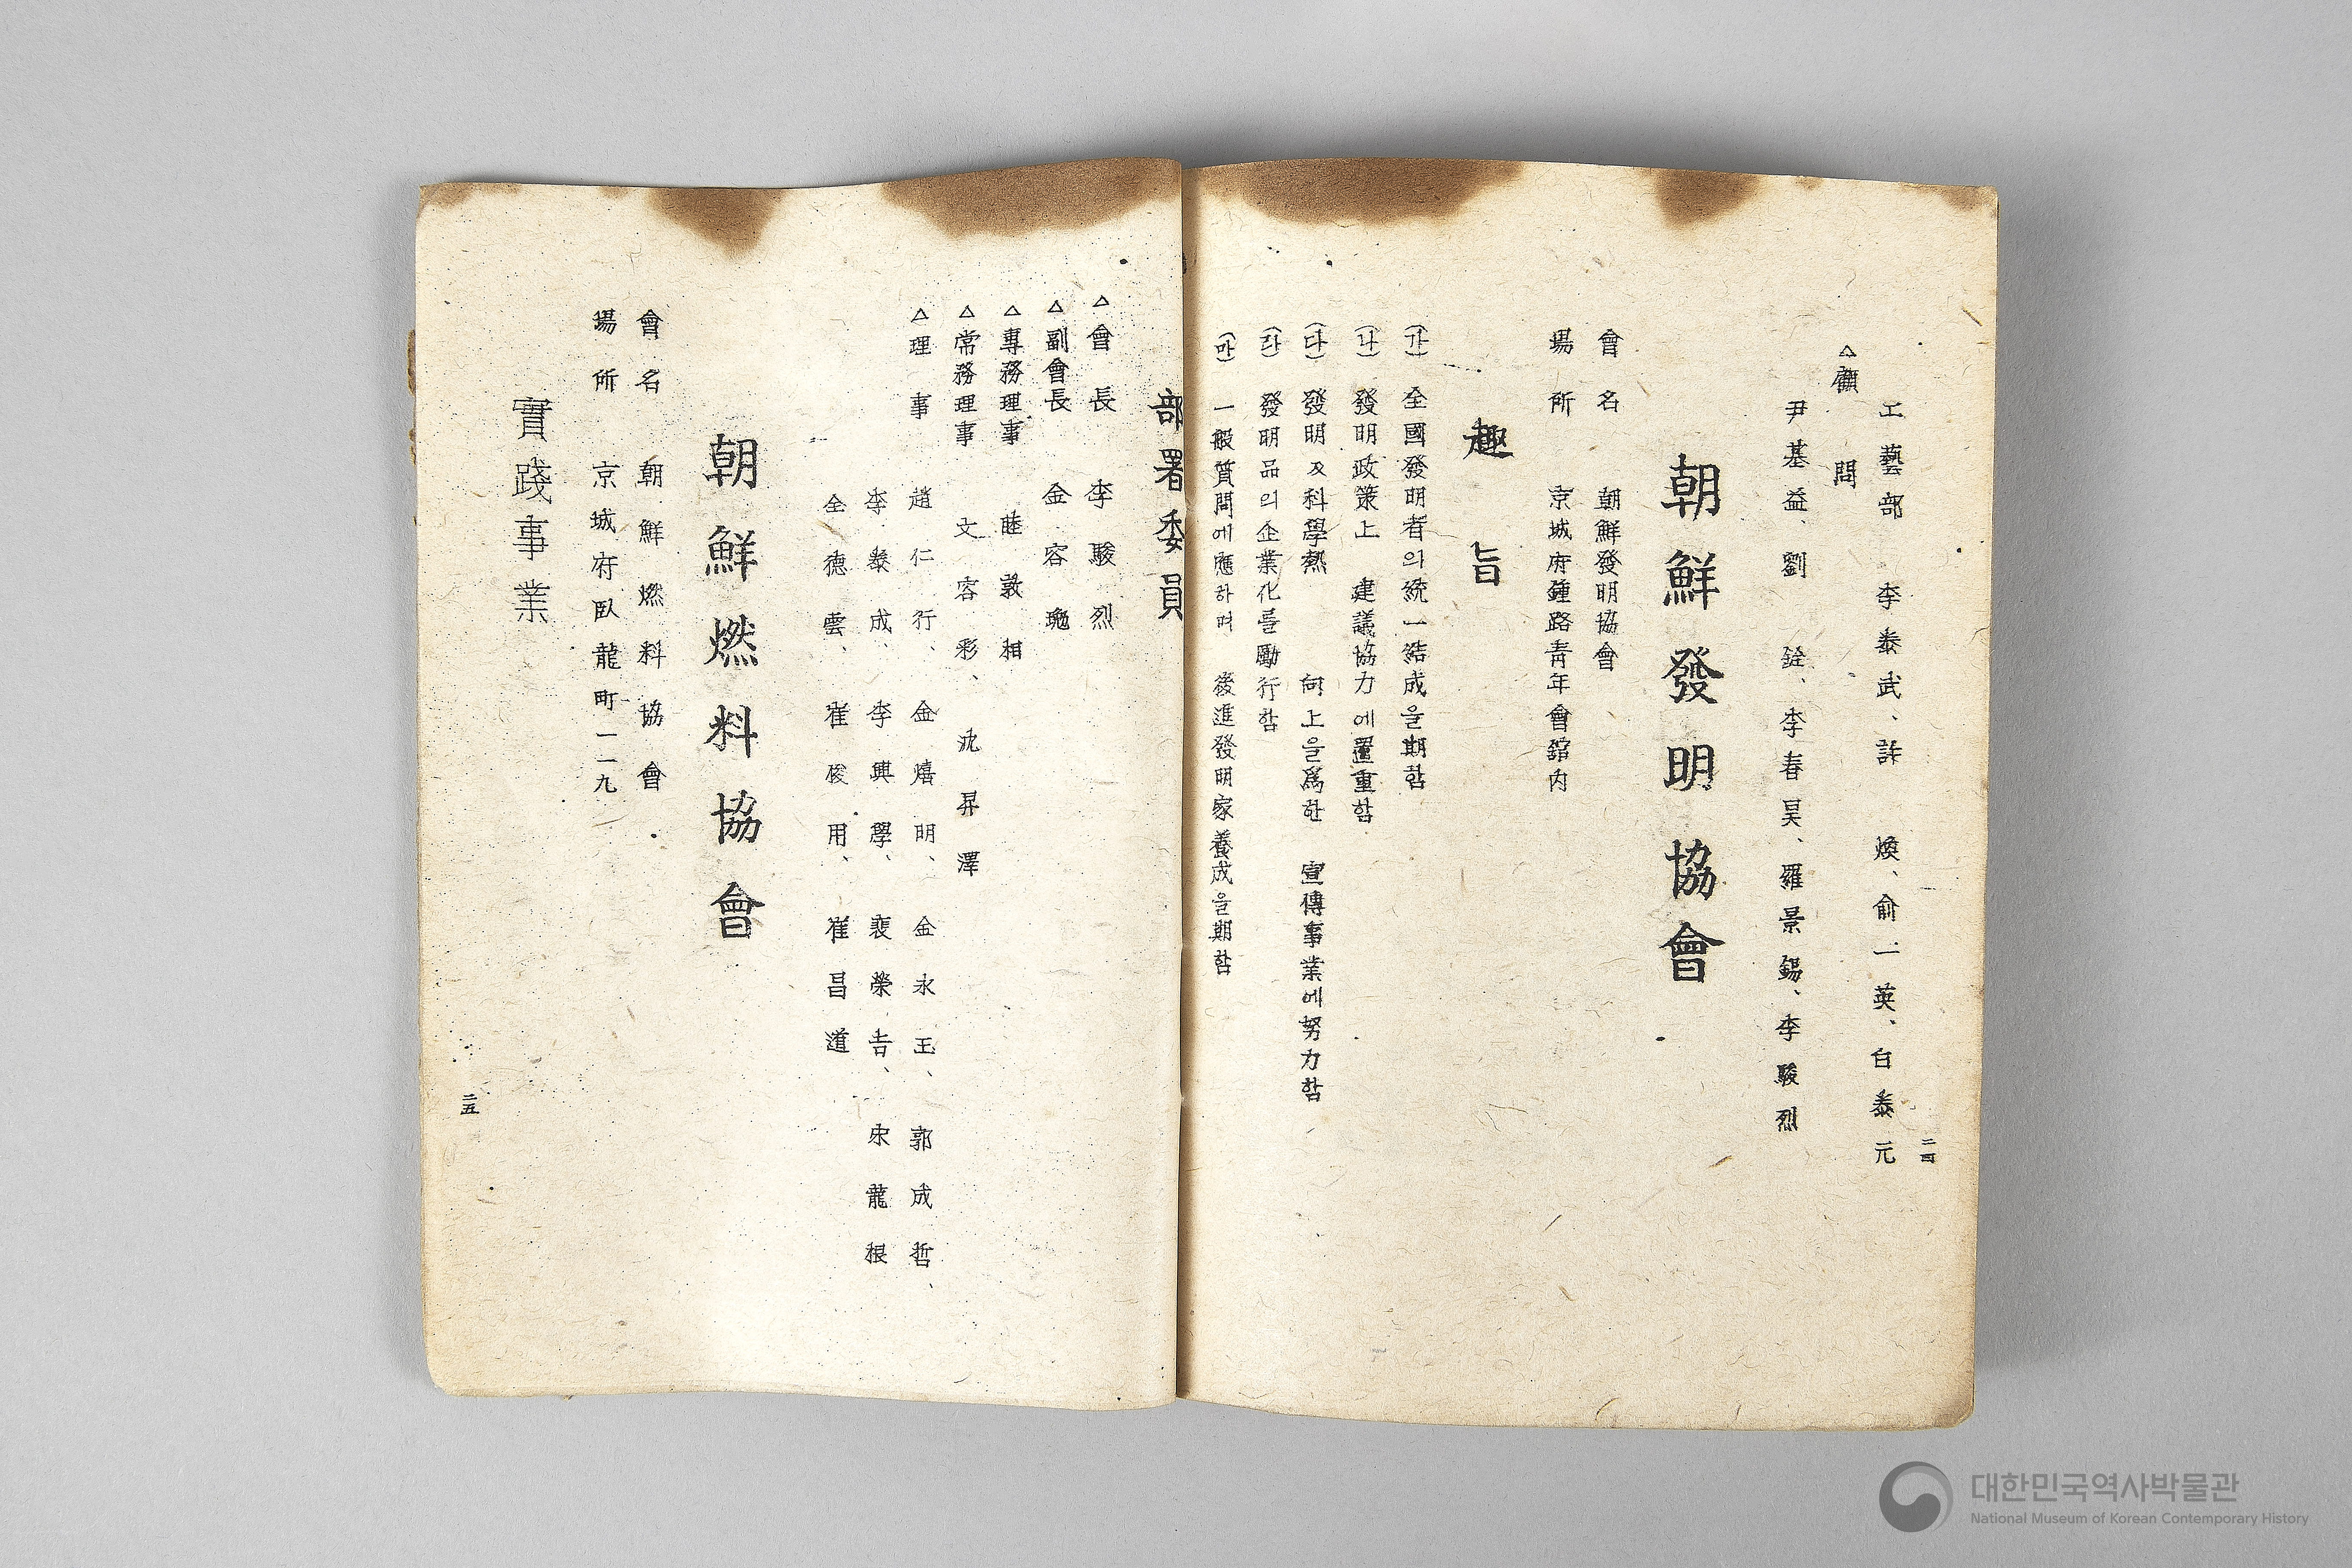 二四
工藝部 李泰武、許 煥、俞一英、白泰元
△顧問
尹基益、劉 銓、李春昊、羅景錫、李駿烈
朝鮮發明協會
會名 朝鮮發明協會
場所 京城府鍾路青年會舘内
趣旨
(가) 全國發明者의統一結成을期함
(나) 發明政策上 建議協力에置重함
(다) 發明及科學熱 向上을爲한 宣傳事業에努力함
(라) 發明品의企業化를勵行함
(마) 一般質問에應하며 後進發明家養成을期함
部署委員
△會長 李駿烈
△副會長 金容
△專務理事 睦敦相
△常務理事 文容彩、 昇澤
△理事 趙仁行、金熺明、金永王、郭成哲、
李泰成、李興學、裴榮吉、宋龍根
全德雲、崔俊用、崔昌道
朝鮮燃料協會
會名 朝鮮燃料協會
場所 京城府臥龍町一二九
實踐事業
二五
대한민국역사박물관
National Museum of Korean Contemporary History